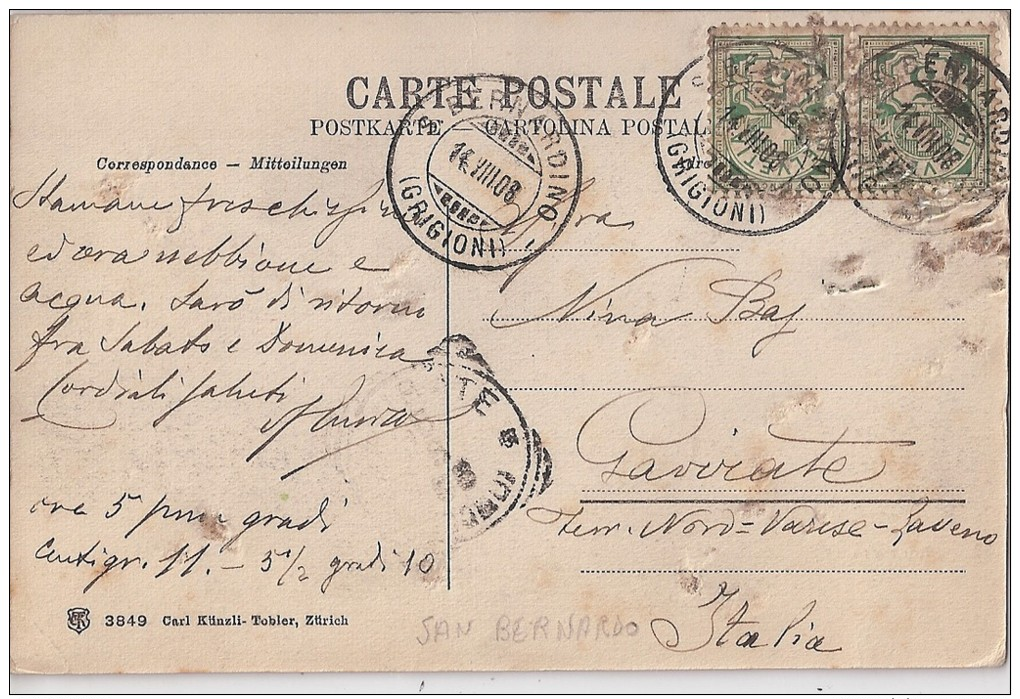 CARTE POSTALE
POSTKARTE — CARTOLINA POSTALE
Correspondance — Mitteilungen
S. BERNARDINO
14.VIII.08
(GRIGIONI)
S. BERNARDINO
14.VIII.08
(GRIGIONI)
BERNARDINO
14.VIII.08
HELVETIA
Stamane
ed ora nebbione e
acqua. Sarò di ritorno
fra Sabato e Domenica
Cordiali saluti
ore 5 pom gradi
centigr. 11. – 5½ gradi 10
Nina Baj
Gavirate
Ferr. Nord = Varese – Laveno
Italia
3849 Carl Künzli-Tobler, Zürich
SAN BERNARDO